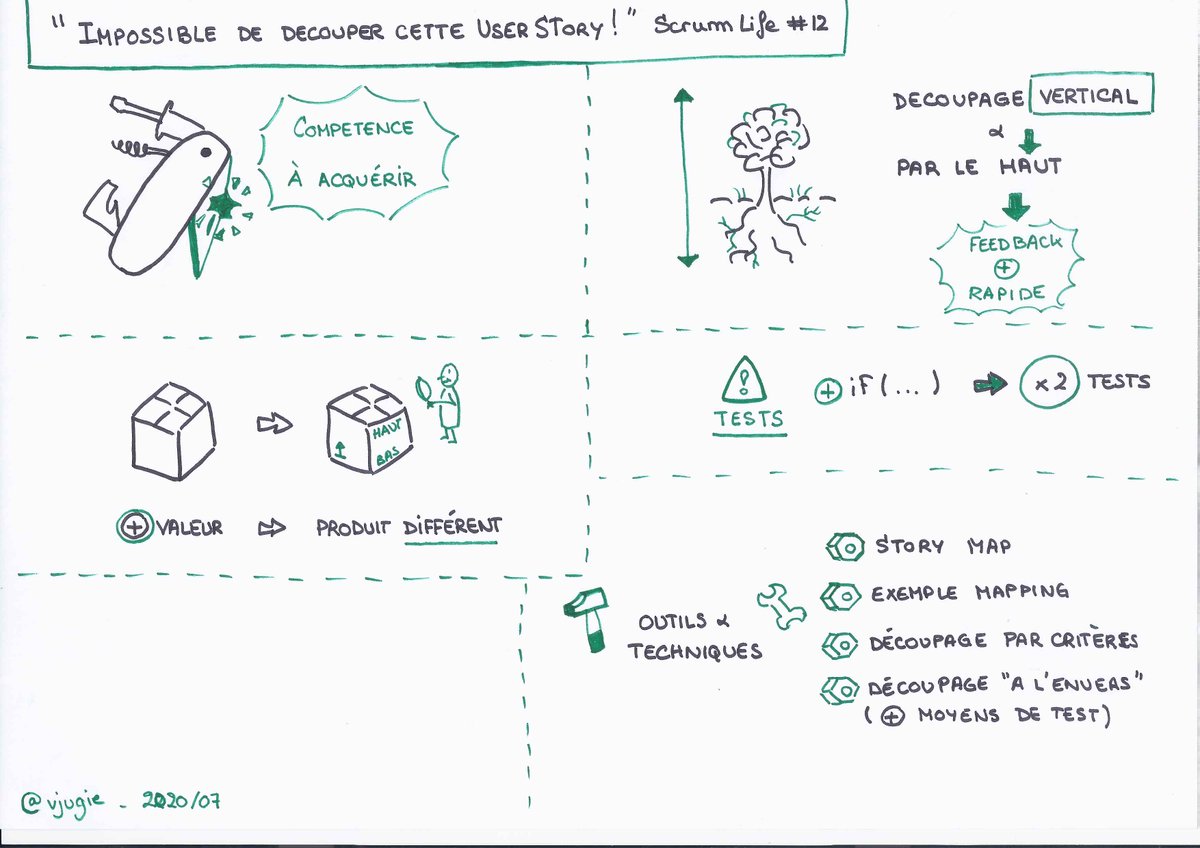 "IMPOSSIBLE DE DECOUPER CETTE USER STORY!" Scrum Life #12
COMPETENCE
À ACQUÉRIR
DECOUPAGE VERTICAL
&
PAR LE HAUT
FEEDBACK
+
RAPIDE
HAUT
BAS
+ VALEUR ⇨ PRODUIT DIFFÉRENT
!
TESTS
+ if (...) ➡ x2 TESTS
OUTILS &
TECHNIQUES
STORY MAP
EXEMPLE MAPPING
DÉCOUPAGE PAR CRITÈRES
DÉCOUPAGE "A L'ENVERS"
(+ MOYENS DE TEST)
@vjugie - 2020/07